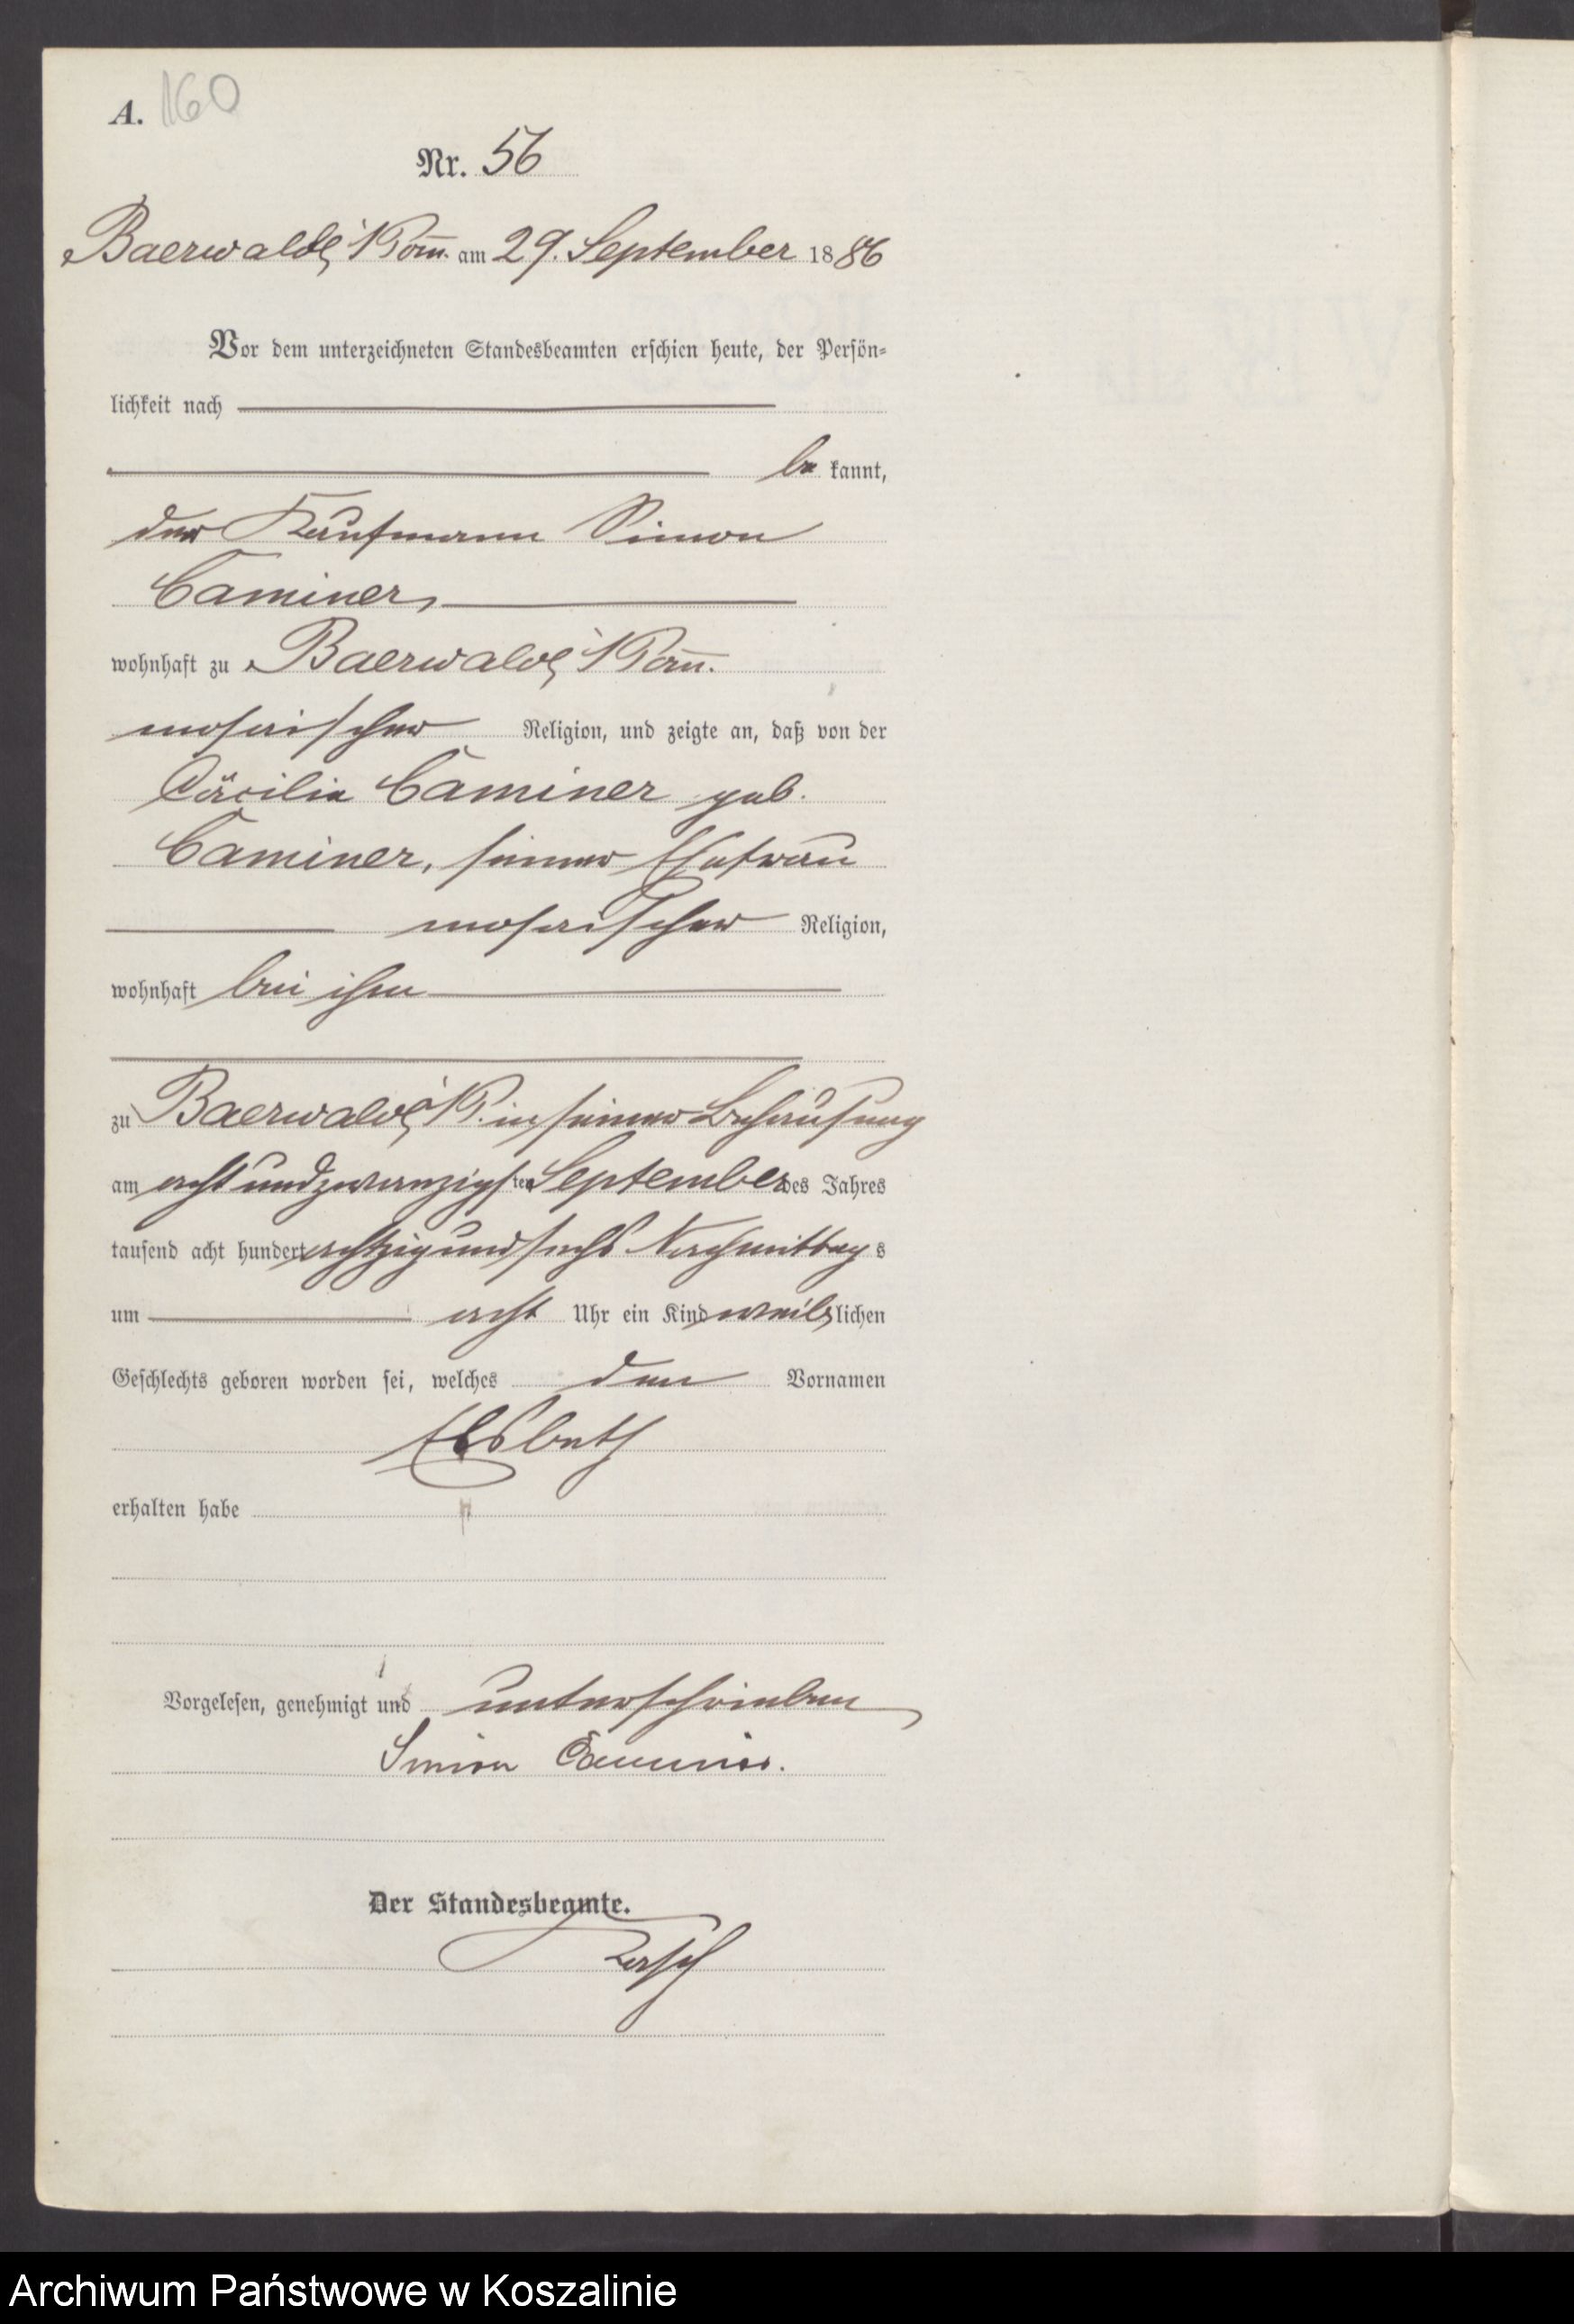 A. 160
Nr. 56
Baerwalde i/Pom̅. am 29. September 1886
Vor dem unterzeichneten Standesbeamten erschien heute, der Persön-
lichkeit nach
be kannt,
der Kaufmann Simon
Caminer,
wohnhaft zu Baerwalde i/Pom̅.
mosaischer Religion, und zeigte an, daß von der
Cäcilie Caminer geb.
Caminer, seiner Ehefrau
mosaischer Religion,
wohnhaft bei ihm
zu Baerwalde i/P. in seiner Behausung
am acht und zwanzigsten September des Jahres
tausend acht hundert achtzig und sechs Nachmittags
um acht Uhr ein Kind weiblichen
Geschlechts geboren worden sei, welches den Vornamen
Elsbeth
erhalten habe
Vorgelesen, genehmigt und unterschrieben
Simon Caminer.
Der Standesbeamte.
Archiwum Państwowe w Koszalinie